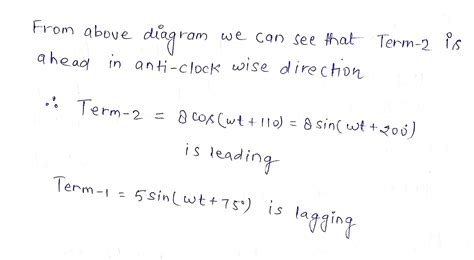 From above diagram we can see that Term-2 is
ahead in anti-clock wise direction
∴ Term-2 = 8 cos(wt + 110) = 8 sin(wt + 200°)
is leading
Term-1 = 5 sin(wt + 75°) is lagging